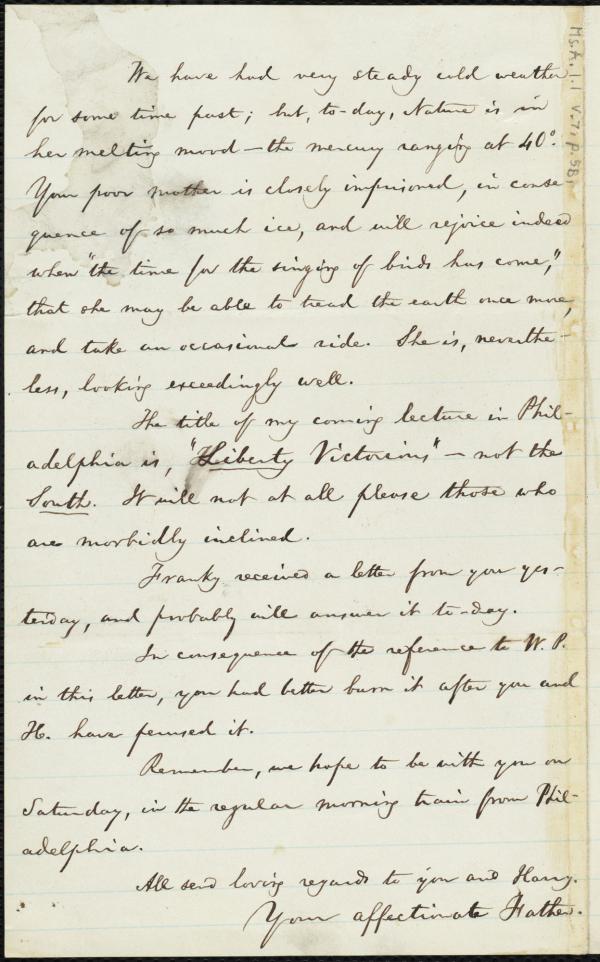 We have had very steady cold weather
for some time past; but, to-day, Nature is in
her melting mood — the mercury ranging at 40°.
Your poor mother is closely imprisoned, in conse-
quence of so much ice, and will rejoice indeed
when "the time for the singing of birds has come,"
that she may be able to tread the earth once more,
and take an occasional ride. She is, neverthe-
less, looking exceedingly well.
The title of my coming lecture in Phil-
adelphia is, "Liberty Victorious" — not the
South. It will not at all please those who
are morbidly inclined.
Franky received a letter from you yes-
terday, and probably will answer it to-day.
In consequence of the reference to W. P.
in this letter, you had better burn it after you and
H. have perused it.
Remember, we hope to be with you on
Saturday, in the regular morning train from Phil-
adelphia.
All send loving regards to you and Harry.
Your affectionate Father.
Ms.A.1.1 v.7, p.5B,